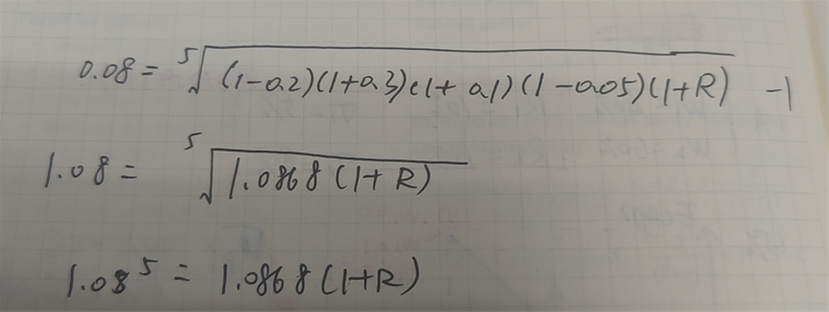 0.08 = ⁵√((1-0.2)(1+0.3)(1+0.1)(1-0.05)(1+R)) -1
1.08 = ⁵√(1.0868(1+R))
1.08⁵ = 1.0868(1+R)